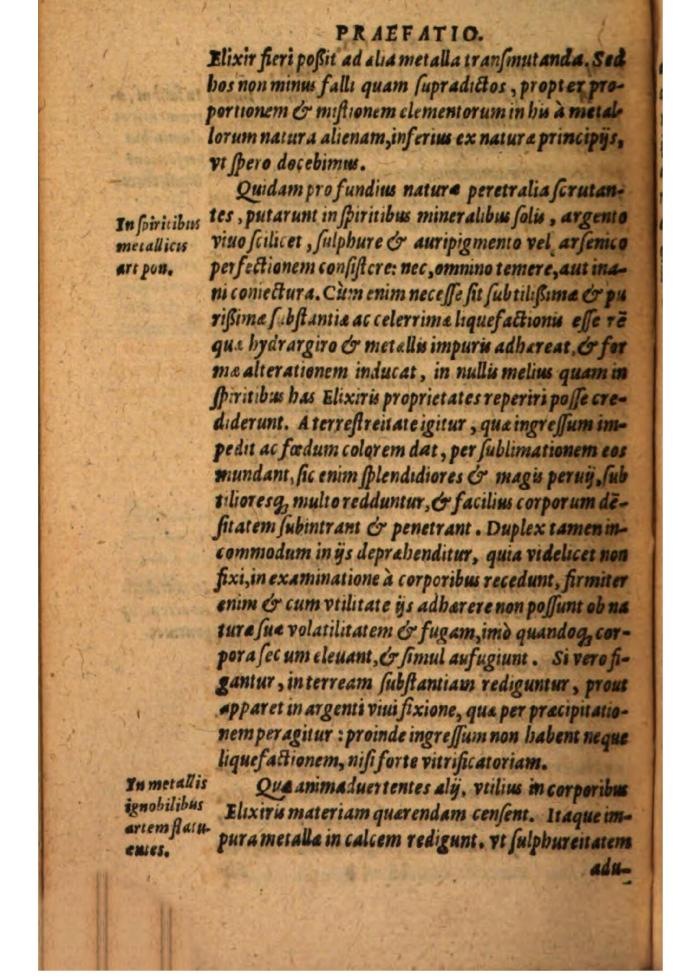 PRAEFATIO.
Elixir fieri poßit ad alia metalla transmutanda. Sed
hos non minus falli quam supradictos, propter pro-
portionem & mistionem elementorum in his à metal-
lorum natura alienam, inferius ex naturæ principijs,
vt spero docebimus.
Quidam profundius naturæ peretralia scrutan-
In spiritibus
metallicis
art pon.
tes, putarunt in spiritibus mineralibus solis, argento
viuo scilicet, sulphure & auripigmento vel arsenico
perfectionem consistere: nec, omnino temere, aut ina-
ni coniectura. Cùm enim necesse sit subtilißimæ & pu
rißimæ substantiæ ac celerrimæ liquefactionis esse rē
quæ hydrargiro & metallis impuris adhæreat, & for
mæ alterationem inducat, in nullis melius quam in
spiritibus has Elixiris proprietates reperiri posse cre-
diderunt. A terrestreitate igitur, quæ ingressum im-
pedit ac fœdum colorem dat, per sublimationem eos
mundant, sic enim splendidiores & magis peruij, sub
tilioresq; multo redduntur, & facilius corporum dē-
sitatem subintrant & penetrant. Duplex tamen in-
commodum in ijs deprahenditur, quia videlicet non
fixi, in examinatione à corporibus recedunt, firmiter
enim & cum vtilitate ijs adhærere non possunt ob na
turæ suæ volatilitatem & fugam, imò quandoq; cor-
pora secum eleuant, & simul aufugiunt. Si vero fi-
gantur, in terream substantiam rediguntur, prout
apparet in argenti viui fixione, quæ per præcipitatio-
nem peragitur: proinde ingressum non habent neque
liquefactionem, nisi forte vitrificatoriam.
In metallis
ignobilibus
artem statu-
entes.
Quæ animaduertentes alij, vtilius in corporibus
Elixiris materiam quærendam censent. Itaque im-
pura metalla in calcem redigunt. vt sulphureitatem
adu-